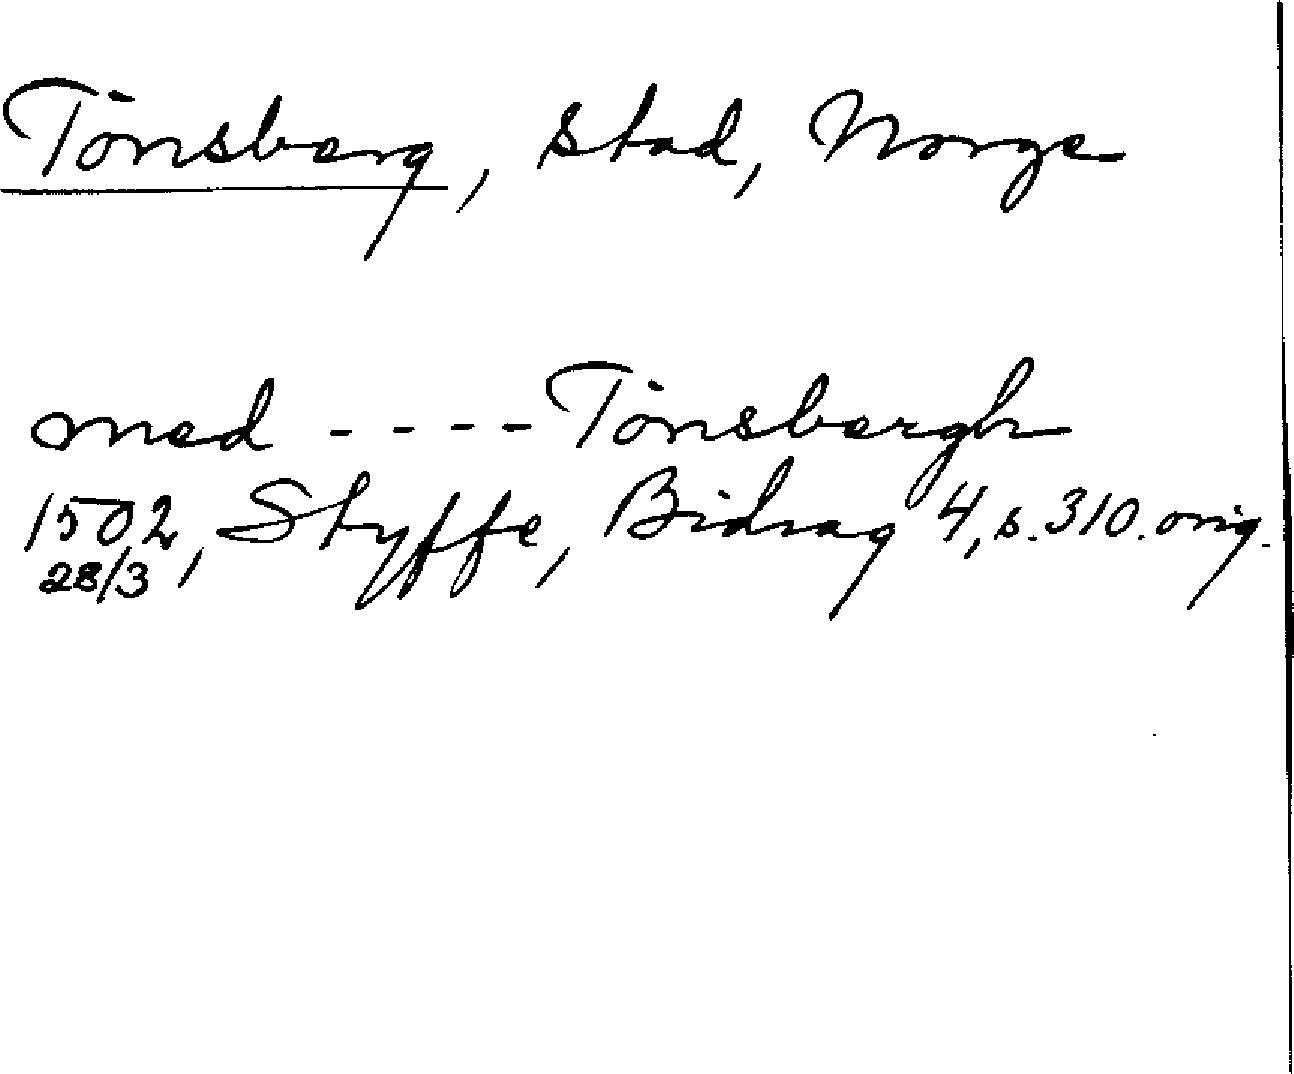 Tönsberg, stad, Norge
med - - - - Tönsbergh
1502, Styffe, Bidrag 4, s. 310. orig.
28/3